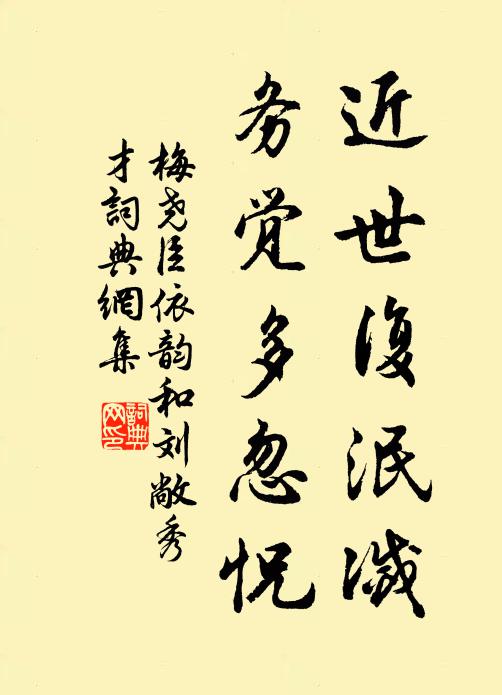 近世復泯滅
务觉多忽怳
梅尧臣依韵和刘敞秀
才詞典網集
詞典
网印